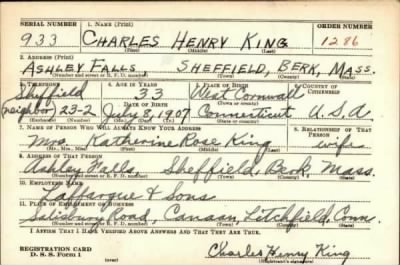 SERIAL NUMBER 1. NAME (Print) ORDER NUMBER
933 CHARLES HENRY KING 1286
(First) (Middle) (Last)
2. ADDRESS (Print)
ASHLEY FALLS SHEFFIELD, BERK, MASS.
(Number and street or R. F. D. number) (Town) (County) (State)
3. TELEPHONE 4. AGE IN YEARS 5. PLACE OF BIRTH 6. COUNTRY OF CITIZENSHIP
Sheffield 33 West Cornwall
(neighbor) 23-2 DATE OF BIRTH (Town or county)
1907 Connecticut U.S.A.
(Mo.) (Day) (Yr.) (State or country)
7. NAME OF PERSON WHO WILL ALWAYS KNOW YOUR ADDRESS 8. RELATIONSHIP OF THAT PERSON
Mrs. Katherine Rose King wife
(Mr., Mrs., Miss) (First) (Middle) (Last)
9. ADDRESS OF THAT PERSON
Ashley Falls, Sheffield, Berk. Mass.
(Number and street or R. F. D. number) (Town) (County) (State)
10. EMPLOYER'S NAME
Laffargue & Sons
11. PLACE OF EMPLOYMENT OR BUSINESS
Salisbury Road, Canaan, Litchfield, Conn.
(Number and street or R. F. D. number) (Town) (County) (State)
I AFFIRM THAT I HAVE VERIFIED ABOVE ANSWERS AND THAT THEY ARE TRUE.
REGISTRATION CARD
D. S. S. Form 1 Charles Henry King
(Registrant's signature)